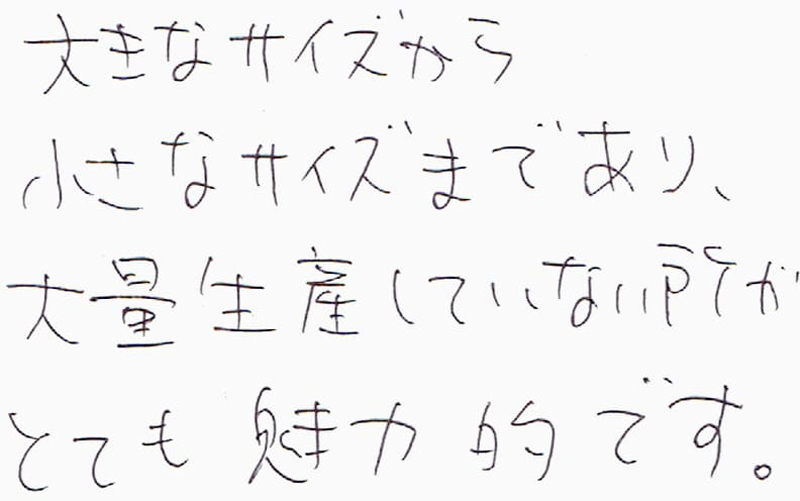 大きなサイズから
小さなサイズまであり、
大量生産していない所が
とても魅力的です。